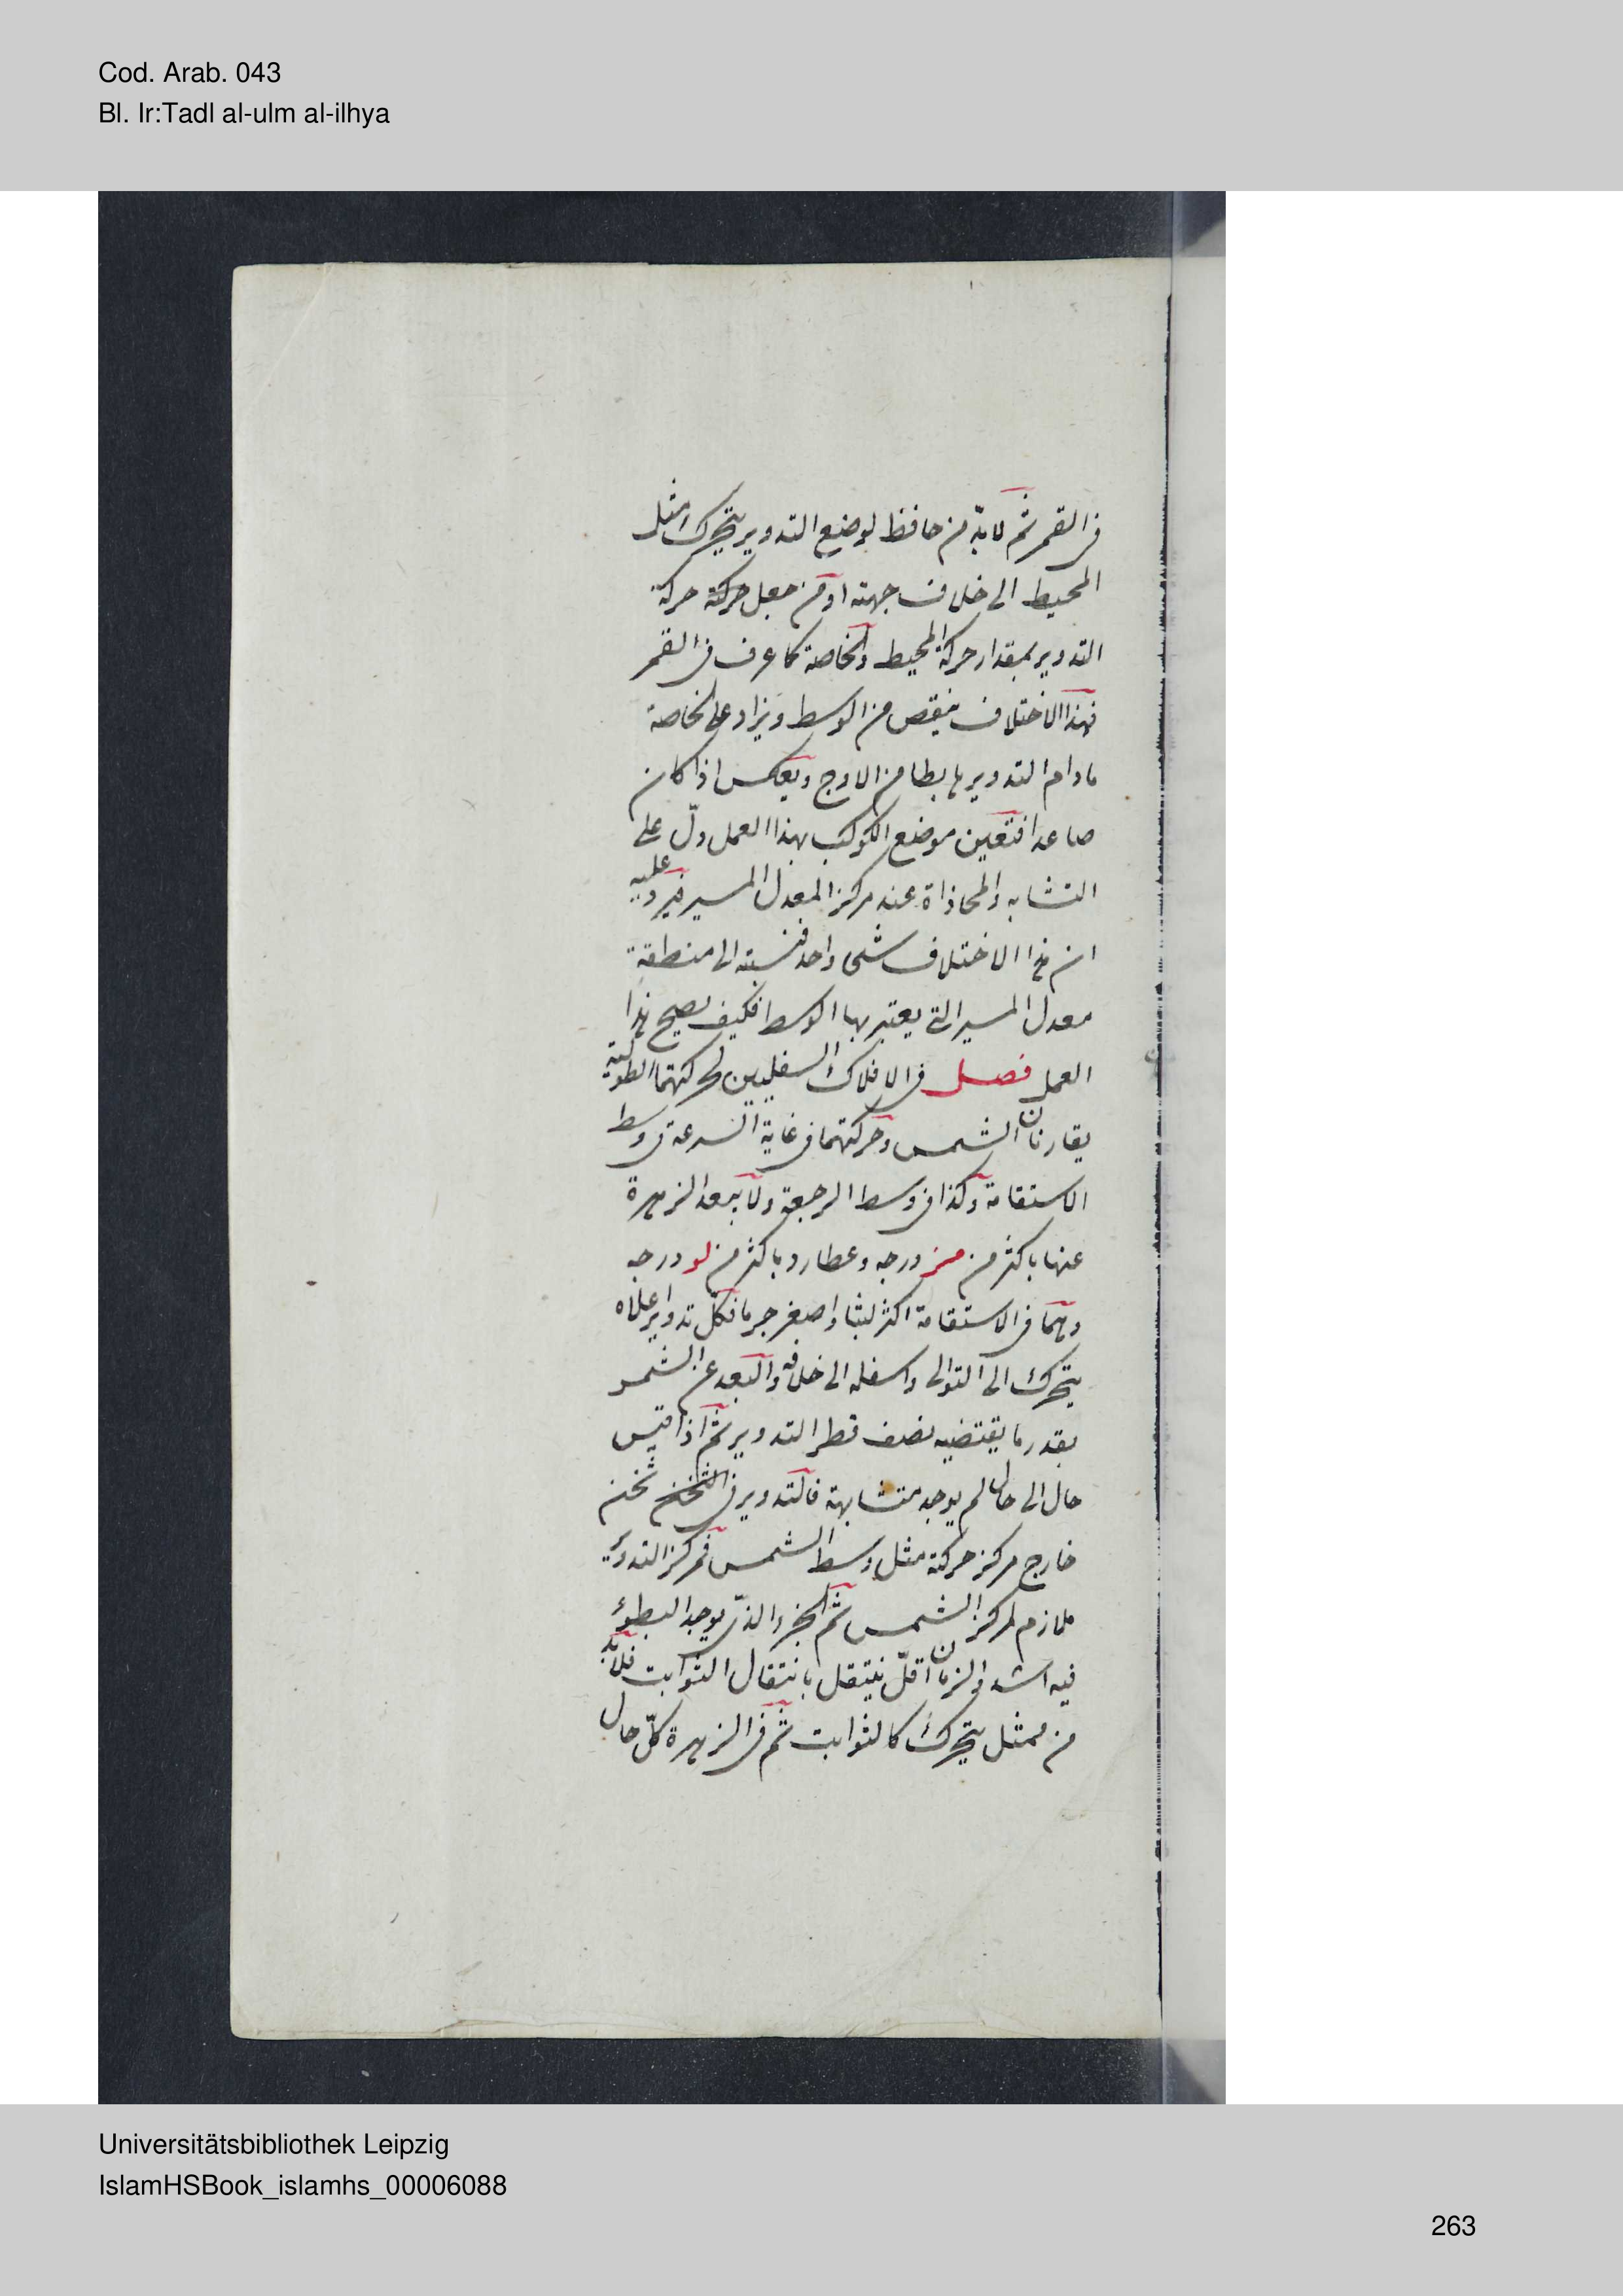 Cod. Arab. 043
Bl. Ir:Tadl al-ulm al-ilhya
فى القمر ثم لا بدّ من حافظ لوضع التدوير يتحرك مثل
المحيط الى خلاف جهته او من جعل حركة حركة
التدوير بمقدار حركة المحيط والخاصة كما عرف فى القمر
فهذا الاختلاف ينقص من الوسط ويزاد على الخاصة
ما دام التدوير هابطا من الاوج وبعكس اذا كان
صاعدا فتعين موضع الكوكب بهذا العمل دلّ على
التشابه والمحاذاة عند مركز المعدل المسير فيرد عليه
ان هذا الاختلاف شىء واحد فنسبته الى منطقة
معدل المسير التى يعتبر بها الوسط فكيف يصح هذا
العمل فصل فى الافلاك السفليين لحركتهما الطولية
يقارنان الشمس وحركتهما فى غاية السرعة فى وسط
الاستقامة وكذا فى وسط الرجعة ولا يبعد الزهرة
عنها باكثر من مز درجه وعطارد باكثر من لو درجه
وهما فى الاستقامة اكثر لبثا واصغر جرما فكل تدوير اعلاه
يتحرك الى التوالى واسفله الى خلافه والبعد عن الشمس
بقدر ما يقتضيه نصف قطر التدوير ثم اذا قيس
حال الى حال لم يوجد متشابهة فالتدوير فى الثخن ثخن
خارج مركز حركته مثل وسط الشمس فمركز التدوير
ملازم لمركز الشمس ثم الجزء الذى يوجد البطوء
فيه اشد والزمان اقلّ ينتقل بانتقال الثوابت فلا بد
من ممثل يتحرك كالثوابت ثم فى الزهرة كلّ حال
Universitätsbibliothek Leipzig
IslamHSBook_islamhs_00006088
263